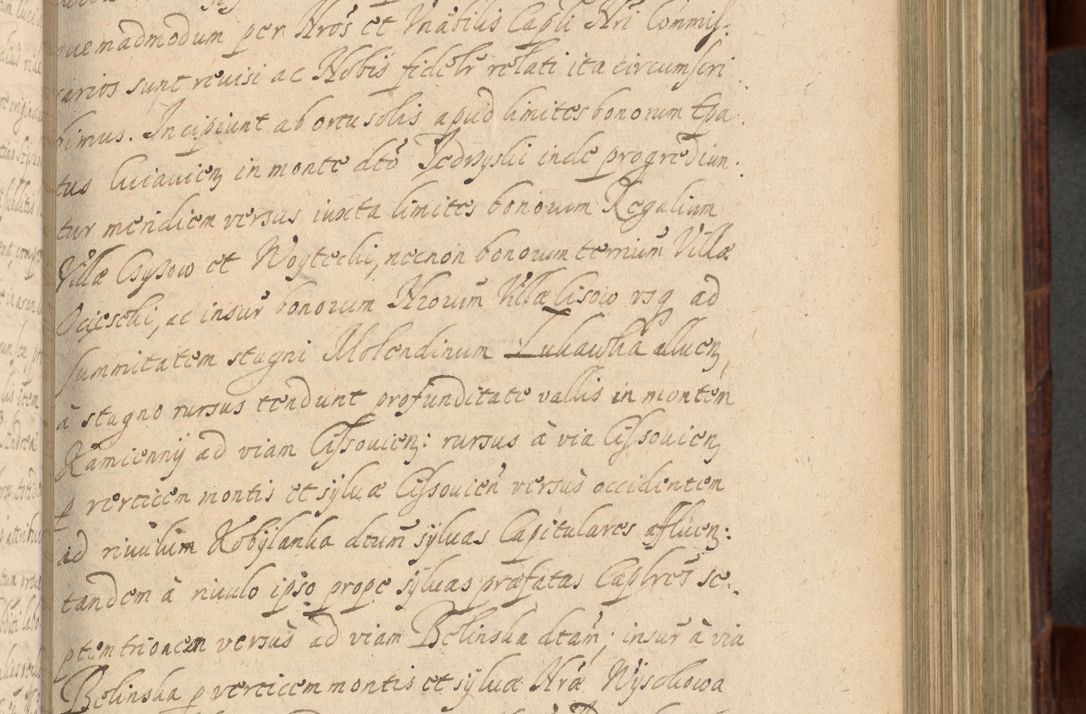 quemadmodum per Nros et Vnabilis Capli Nri Commis.
sarios sunt reuisi ac Nobis fidelr relati ita circumscri
bimus. Incipiunt ab ortu solis apud limites bonorum Epa.
tus Cuiauien in monte dto Jedrzyslii inde progrediun.
tur meridiem versus iuxta limites bonorum Regalium
Villæ Czysow et Woytechi, necnon bonorum terrium Villæ
Ocieschi, ac insur bonorum Nrorum Villæ Lisow vsq ad
summitatem stagni Molendinum Lukawka alluen,
à stagno rursus tendunt profunditate vallis in montem
Kamiennÿ ad viam Cissouien: rursus à via Cissouien
p verticem montis et syluæ Cissouien versus occidentem
ad riuulum Kobÿlanka dtum syluas Capitulares affluen:
tandem à riuulo ipso prope syluas præfatas Caplres se.
ptemtrionem versus ad viam Belinska dtam; insur à via
Belinska p verticem montis et syluæ Nræ Wyschowa